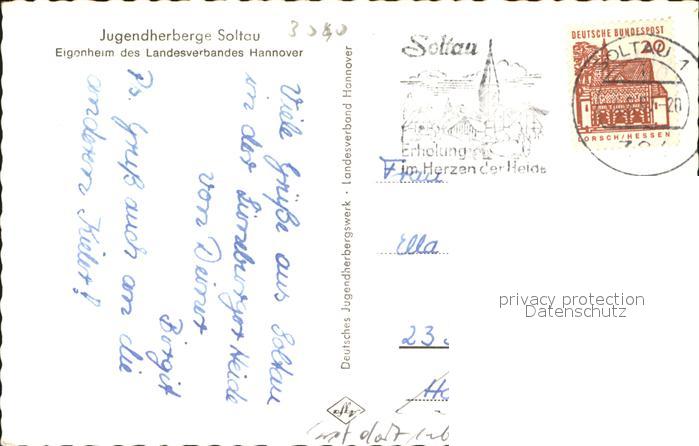 Jugendherberge Soltau
Eigenheim des Landesverbandes Hannover
3040
Viele Grüße aus Soltau
in der Lüneburger Heide
von Deiner
Birgit
Ps. Gruß auch an die
anderen Kieler!
Deutsches Jugendherbergswerk · Landesverband Hannover
Soltau
Erholung
im Herzen der Heide
DEUTSCHE BUNDESPOST
20
LORSCH/HESSEN
SOLTAU 1
Frau
Ella
23
privacy protection
Datenschutz